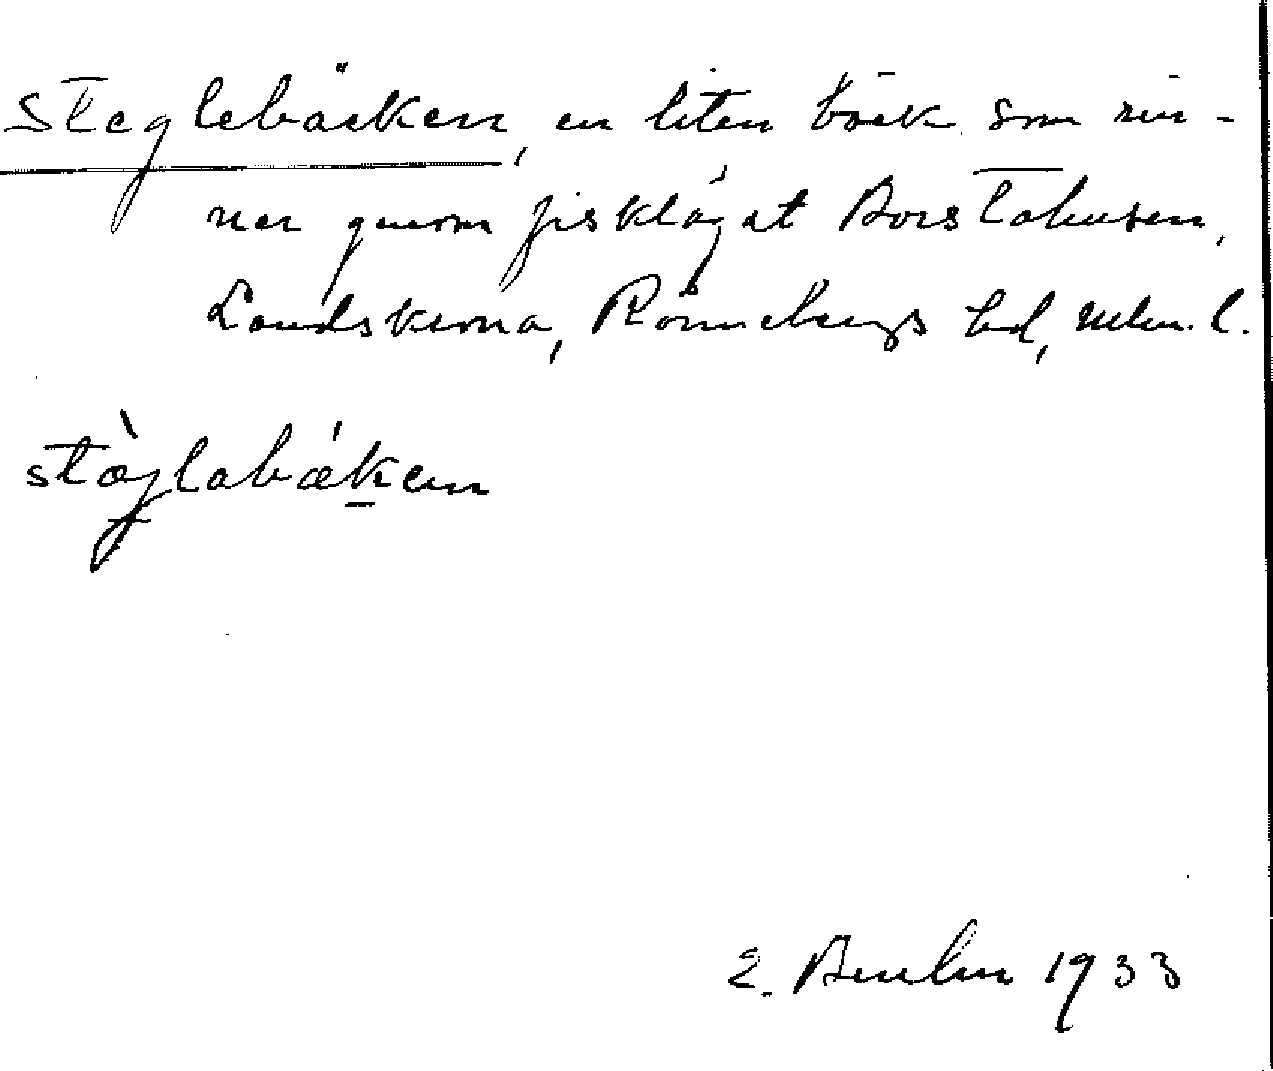 Steglebäcken, en liten bäck som rin-
ner genom fiskläget Borstahusen,
Landskrona, Rönnebergs hd, Malm. l.
stæ̀jlabǽken
1933